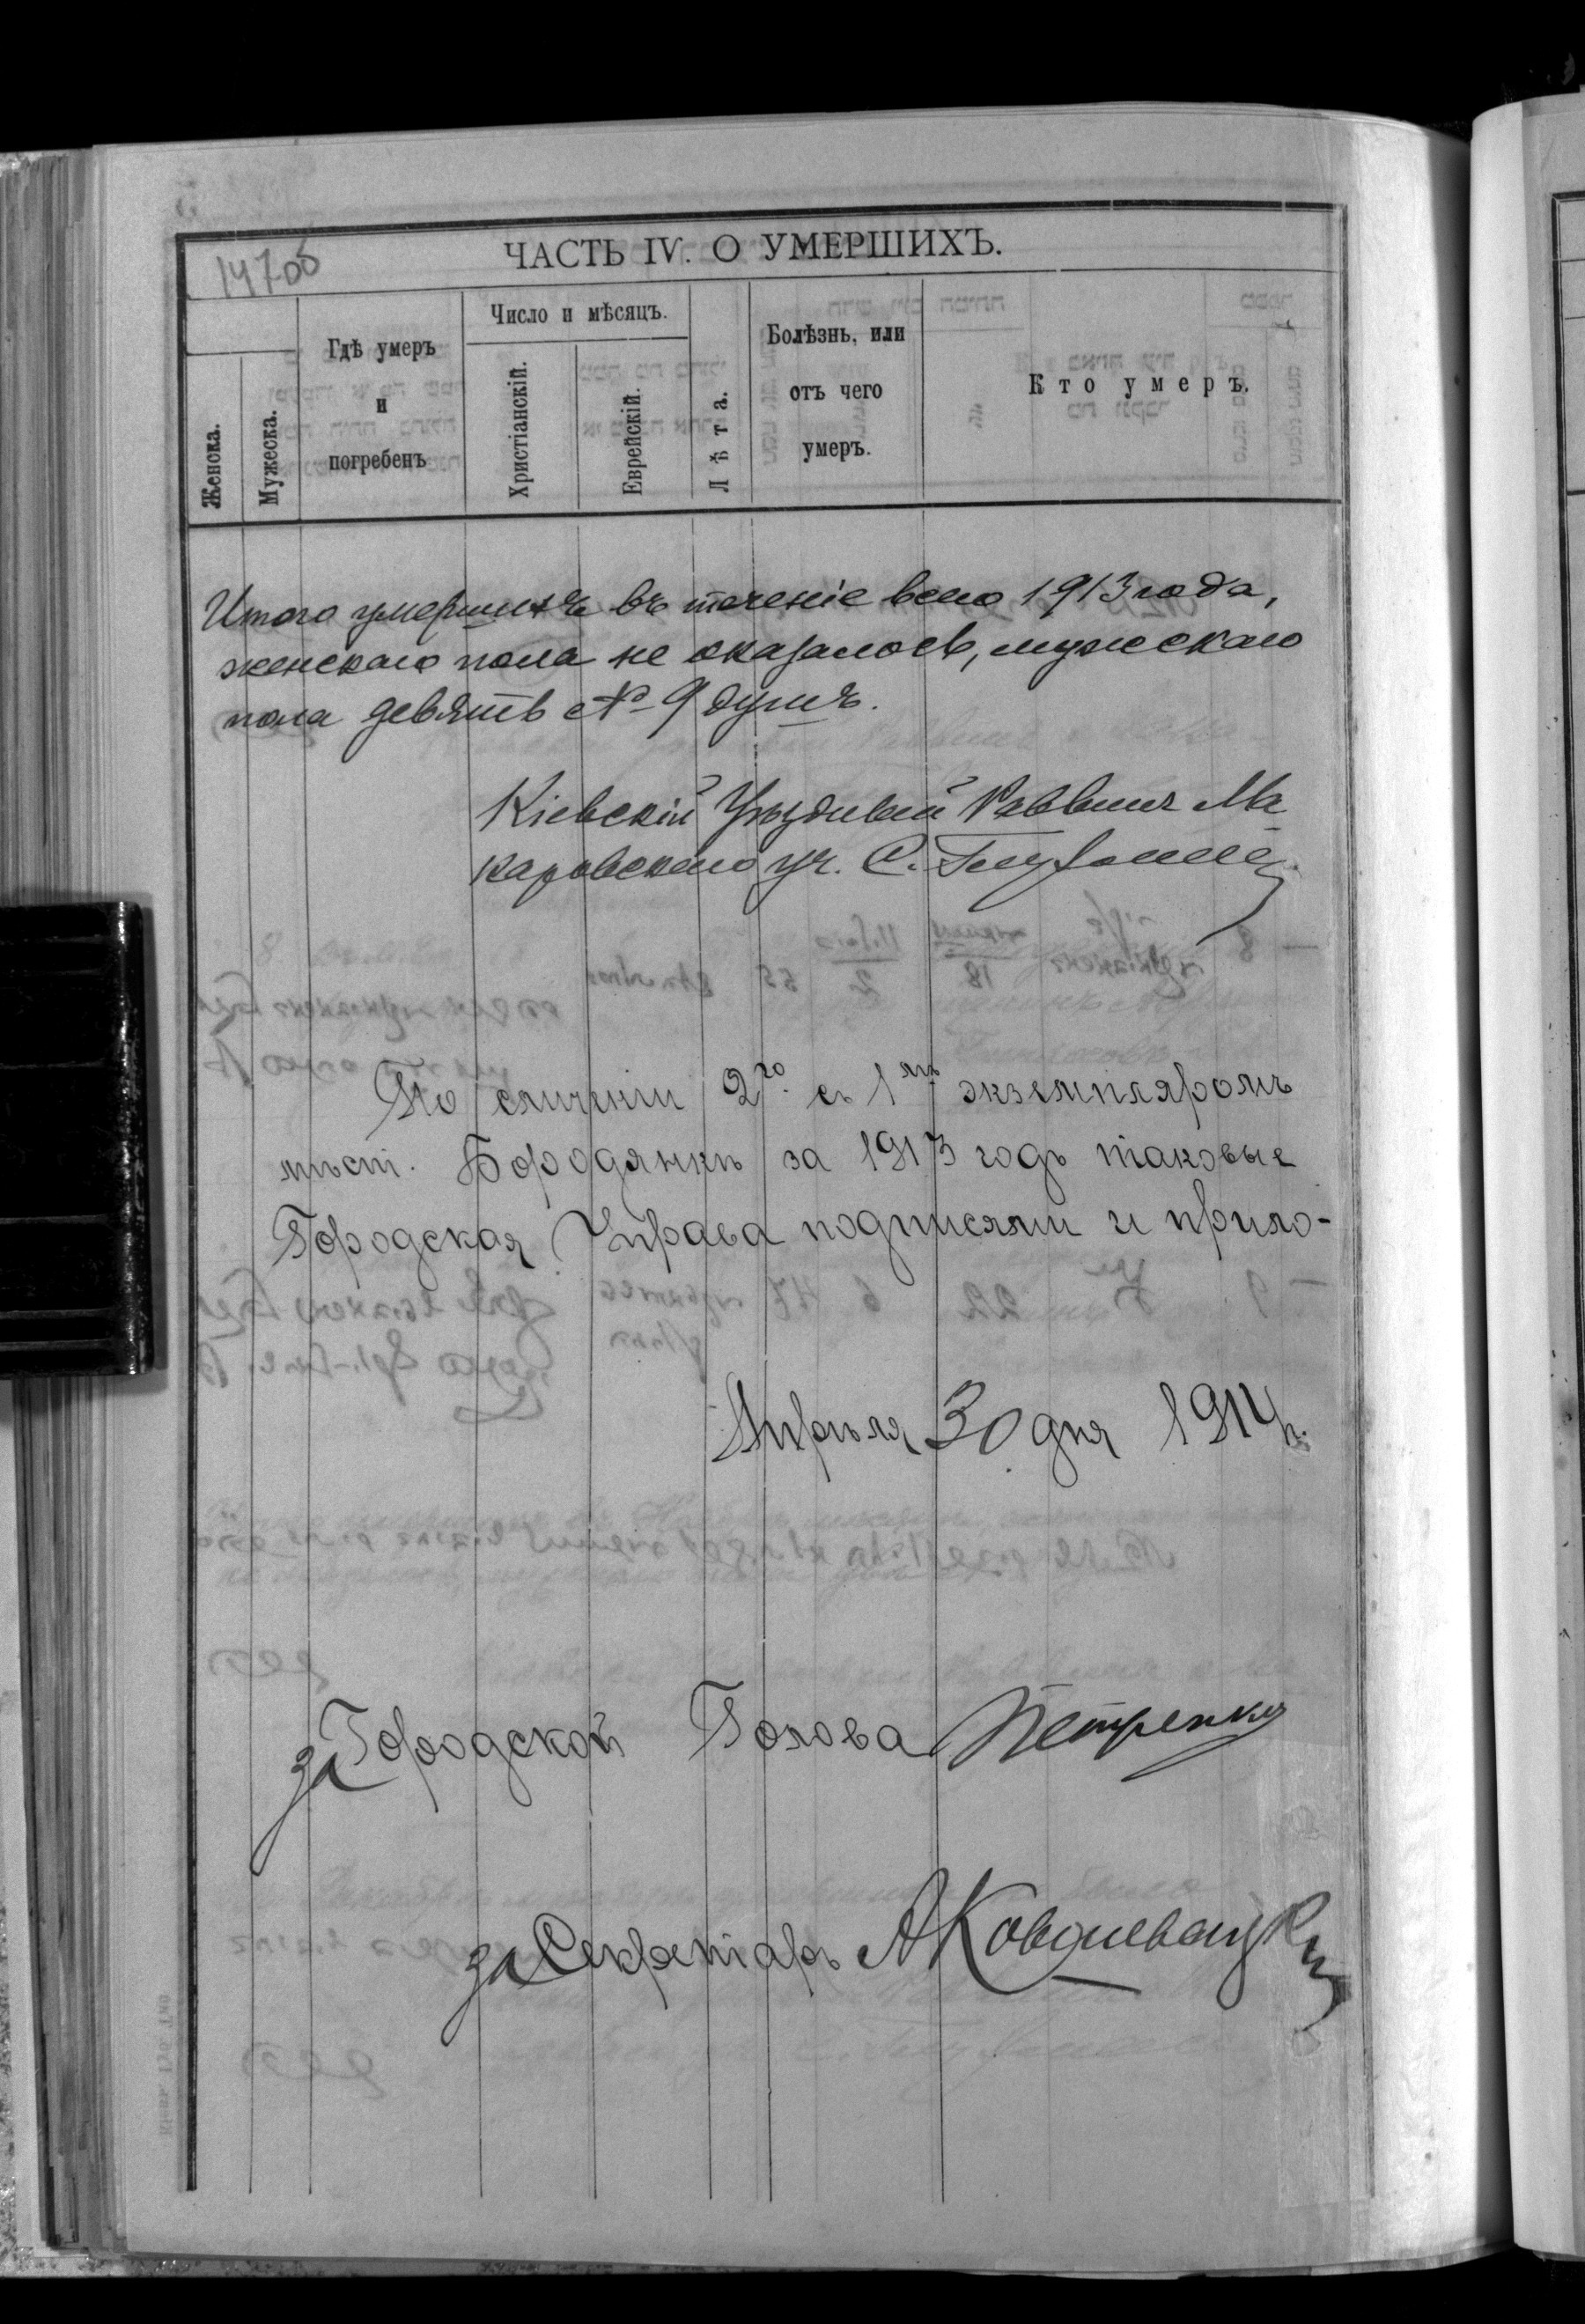 ЧАСТЬ IV. О УМЕРШИХЪ.
Женска.
Мужеска.
Гдѣ умеръ
и
погребенъ
Число и мѣсяцъ.
Христіанскій.
Еврейскій.
Лѣта.
Болѣзнь, или
отъ чего
умеръ.
Кто умеръ.
Итого умершихъ въ теченіе всего 1913 года,
женскаго пола не оказалось, мужескаго
пола девять № 9 душъ.
Кіевскій Уѣздный Раввинъ Ма
каровскаго уч. С.
По сличеніи 2го съ 1мъ экземпляромъ
мѣст. Бородянкѣ за 1913 годъ таковые
Городская Управа подписями и прило-
Апрѣля 30 дня 1914 г.
за Городской Голова Петренко
за Секретарь А